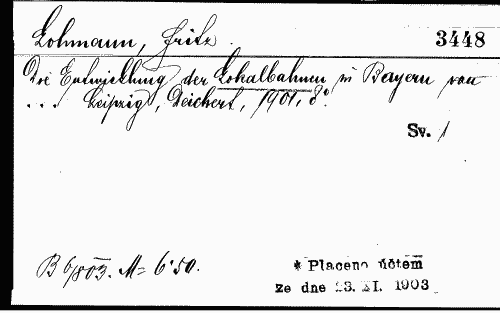 Lohmann, Fritz.
3448
Die Entwicklung der Lokalbahnen in Bayern von
... Leipzig, Deichert, 1901, 8°.
Sv. 1
B 6/8 03. M= 6·50.
* Placeno účtem
ze dne 23. XI. 1903